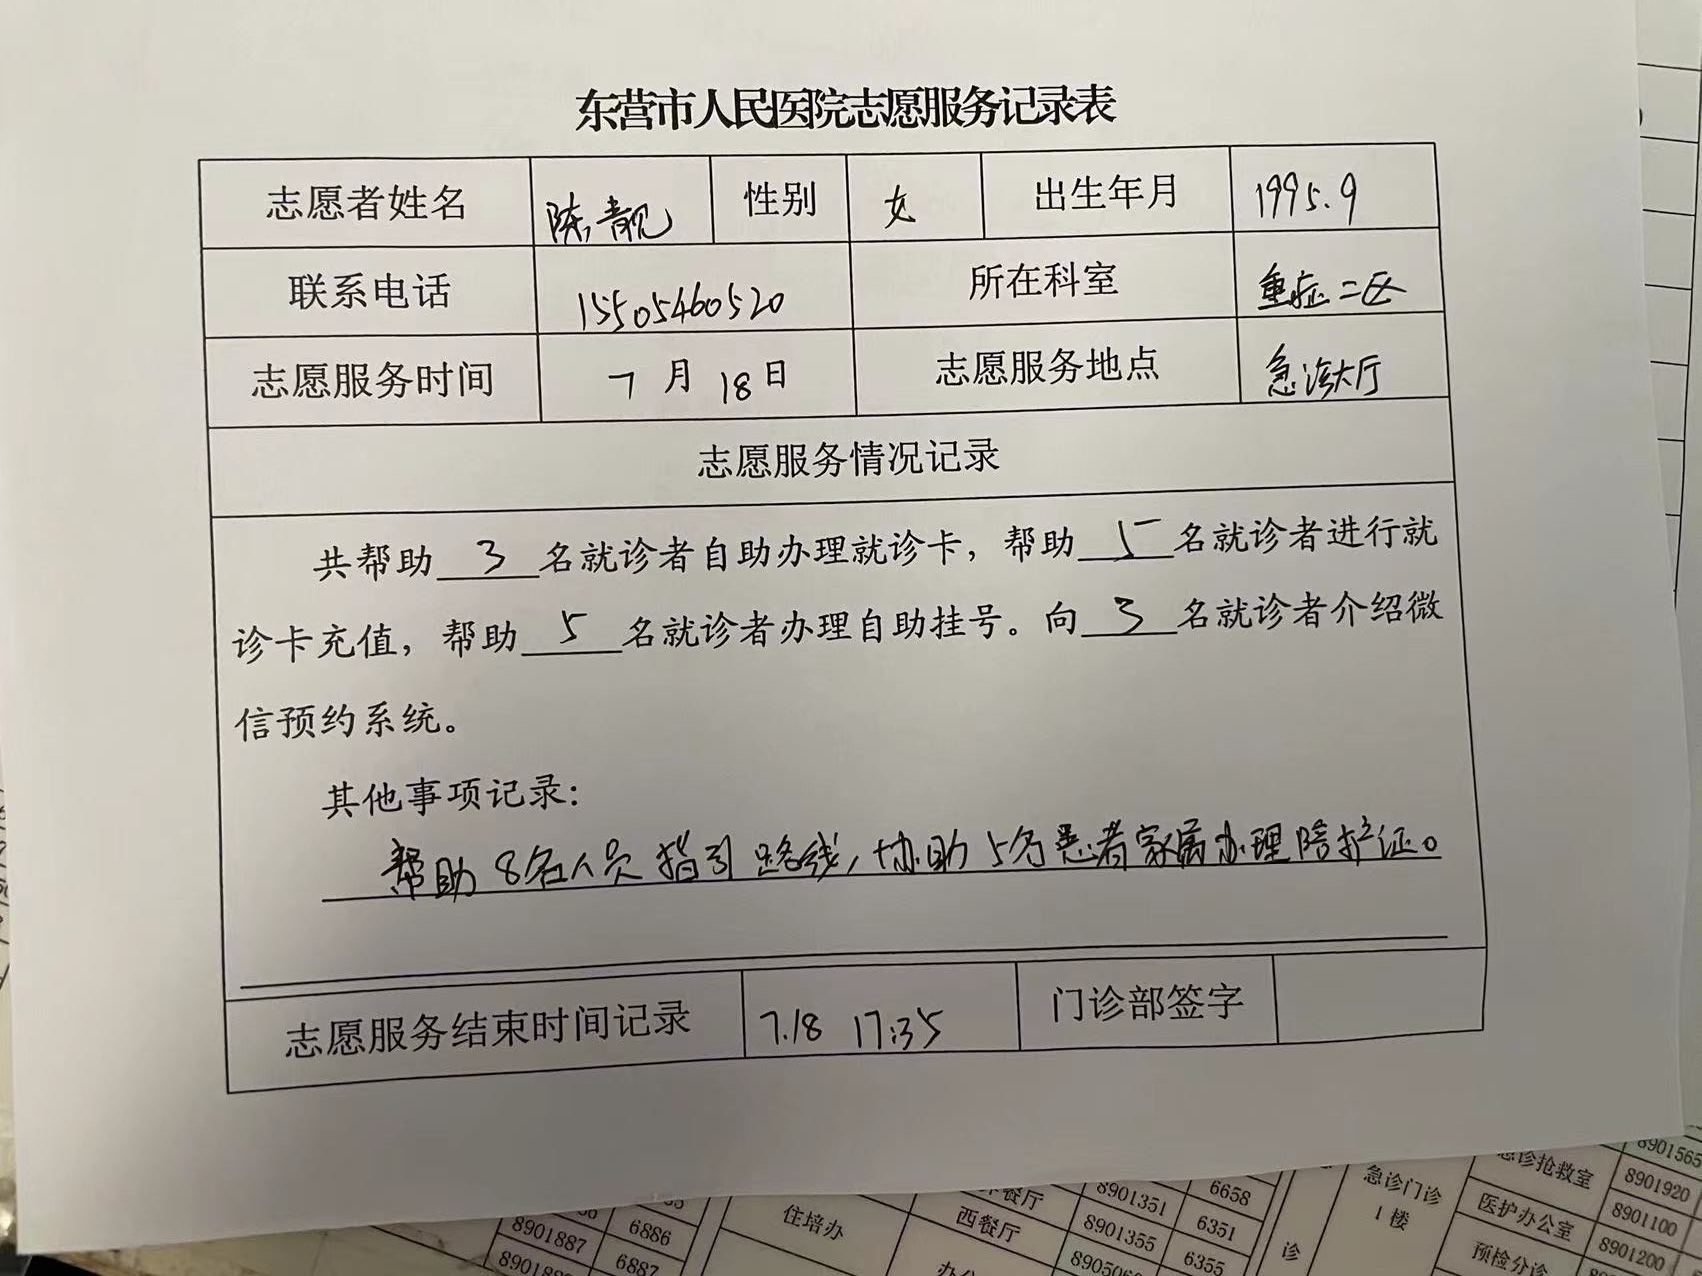 东营市人民医院志愿服务记录表
志愿者姓名 陈靓 性别 女 出生年月 1995.9
联系电话 15505460520 所在科室 重症二区
志愿服务时间 7月18日 志愿服务地点 急诊大厅
志愿服务情况记录
共帮助3名就诊者自助办理就诊卡，帮助5名就诊者进行就
诊卡充值，帮助5名就诊者办理自助挂号。向3名就诊者介绍微
信预约系统。
其他事项记录：
帮助8名人员指引路线，协助5名患者家属办理陪护证。
志愿服务结束时间记录 7.18 17:35 门诊部签字
6886
8901887 6887
住培办
西餐厅
8901351 6658
8901355 6351
6355
急诊门诊
1楼
诊
急诊抢救室 8901565
医护办公室 8901920
预检分诊 8901100
8901200